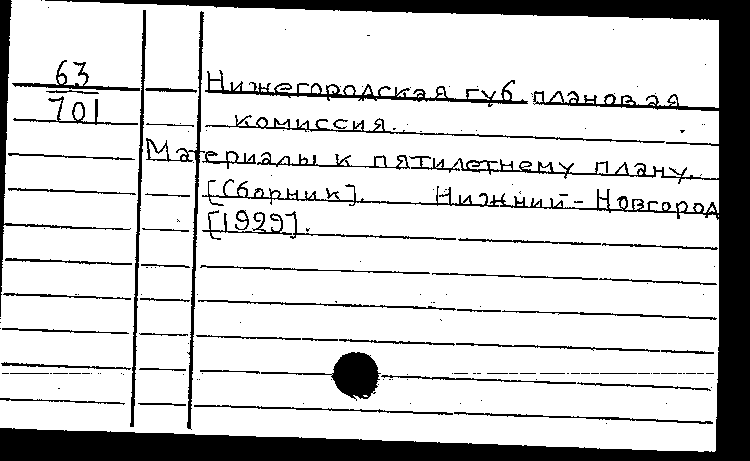 63
701
Нижегородская губ. плановая
комиссия.
Материалы к пятилетнему плану.
[Сборник]. Нижний-Новгород
[1929].